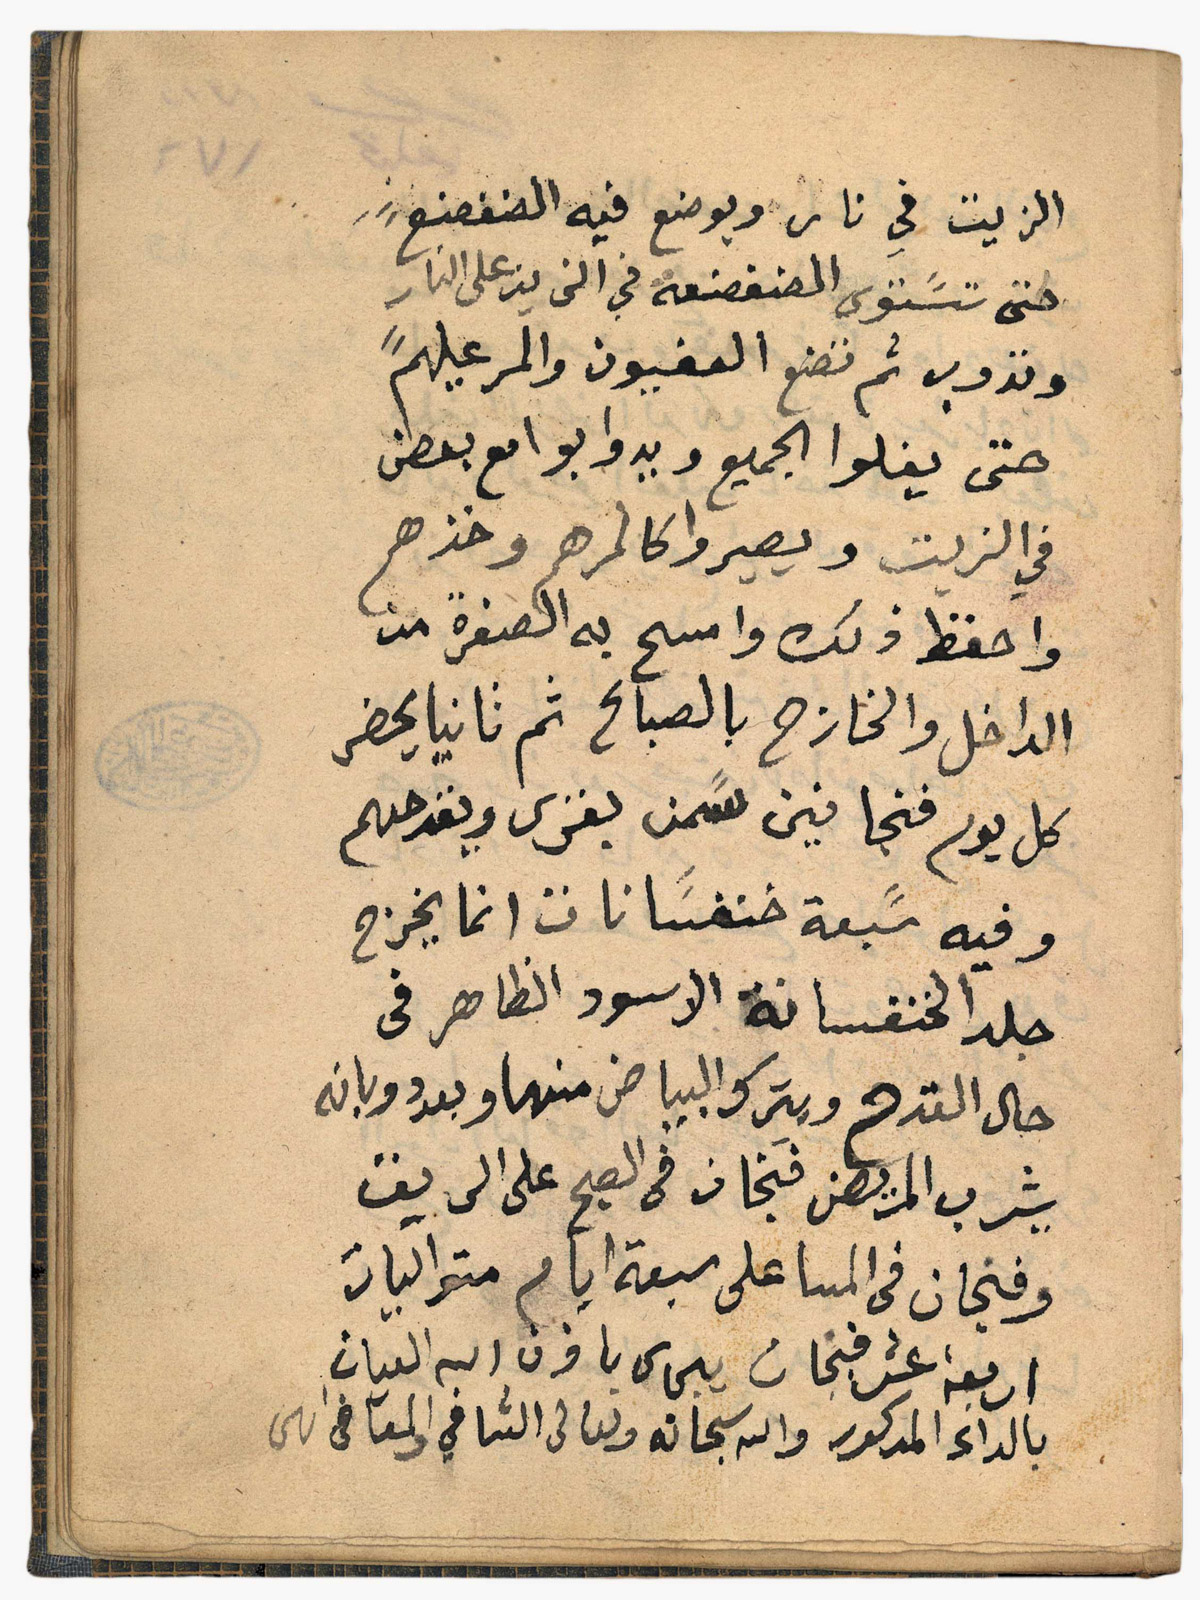 الزيت في نار ويوضع فيه الضفضع
حتى تستوى الضفضعه في الزيت على النار
وتدوب ثم تضع العفيون والمر عيلهم
حتى يغلوا الجميع ويدوابوا مع بعض
في الزيت ويصيروا كالمرهم وخذهم
واحفظ ذلك وامسح به الصفرة من
الداخل والخارج بالصباح ثم ثانيا يحضر
كل يوم فنجانين سمن بقرى ويقدحهم
وفيه سبعة خنفسانات انما يخرج
جلد الخنفسانة الاسود الظاهر فى
حال القدح ويترك البياض منها وبعد دوبانه
يشرب المريض فنجان فى الصبح على الريق
وفنجان فى المسا على سبعة ايام متواليات
اربعة عشر فنجان يبرى باذن الله العيان
بالداء المدكور والله سبحانه وتعالى الشافي والمعافى انتهى